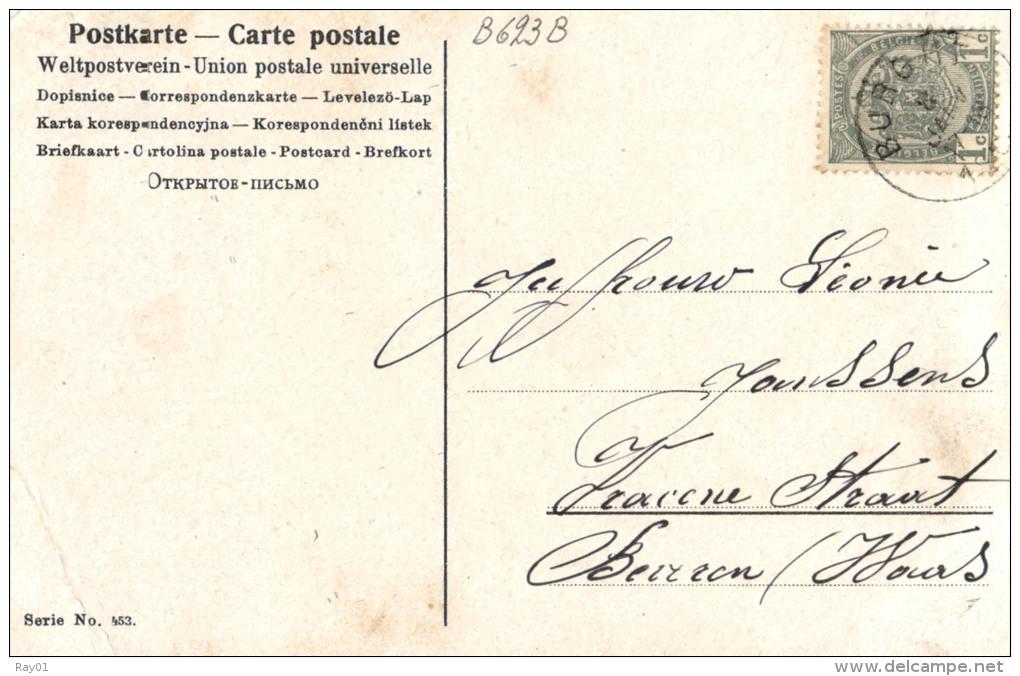 Postkarte — Carte postale
Weltpostverein - Union postale universelle
Dopisnice — Correspondenzkarte — Levelezö-Lap
Karta korespondencyjna — Korespondenčni lístek
Briefkaart - Cartolina postale - Postcard - Brefkort
Открытое-письмо
B623B
1c BELGIË 1c
POSTES
BELGIQUE
1c
BURCHT
Juffrouw Léonie
Janssens
Straat
(Waas
Serie No. 453.
Ray01
www.delcampe.net